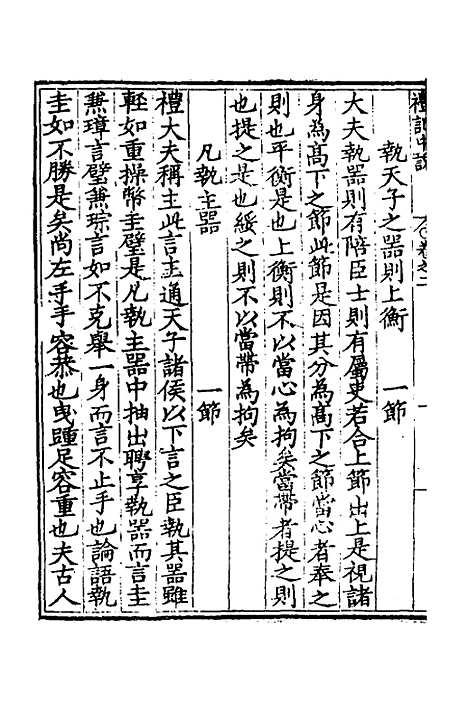 執天子之器則上衡　一節
大夫執器則有陪臣士則有屬吏若合上節出上是視諸
身為髙下之節此節是因其分為髙下之節當心者奉之
則也平衡是也上衡則不以當心為拘矣當帶者提之則
也提之是也綏之則不以當帶為拘矣
凡執主器　一節
禮大夫稱主此言主通天子諸侯以下言之臣執其器雖
輕如重操幣圭璧是凡執主器中抽出聘享執器而言圭
兼璋言璧兼琮言如不克舉一身而言不止手也論語執
圭如不勝是矣尚左手手容恭也曳踵足容重也夫古人